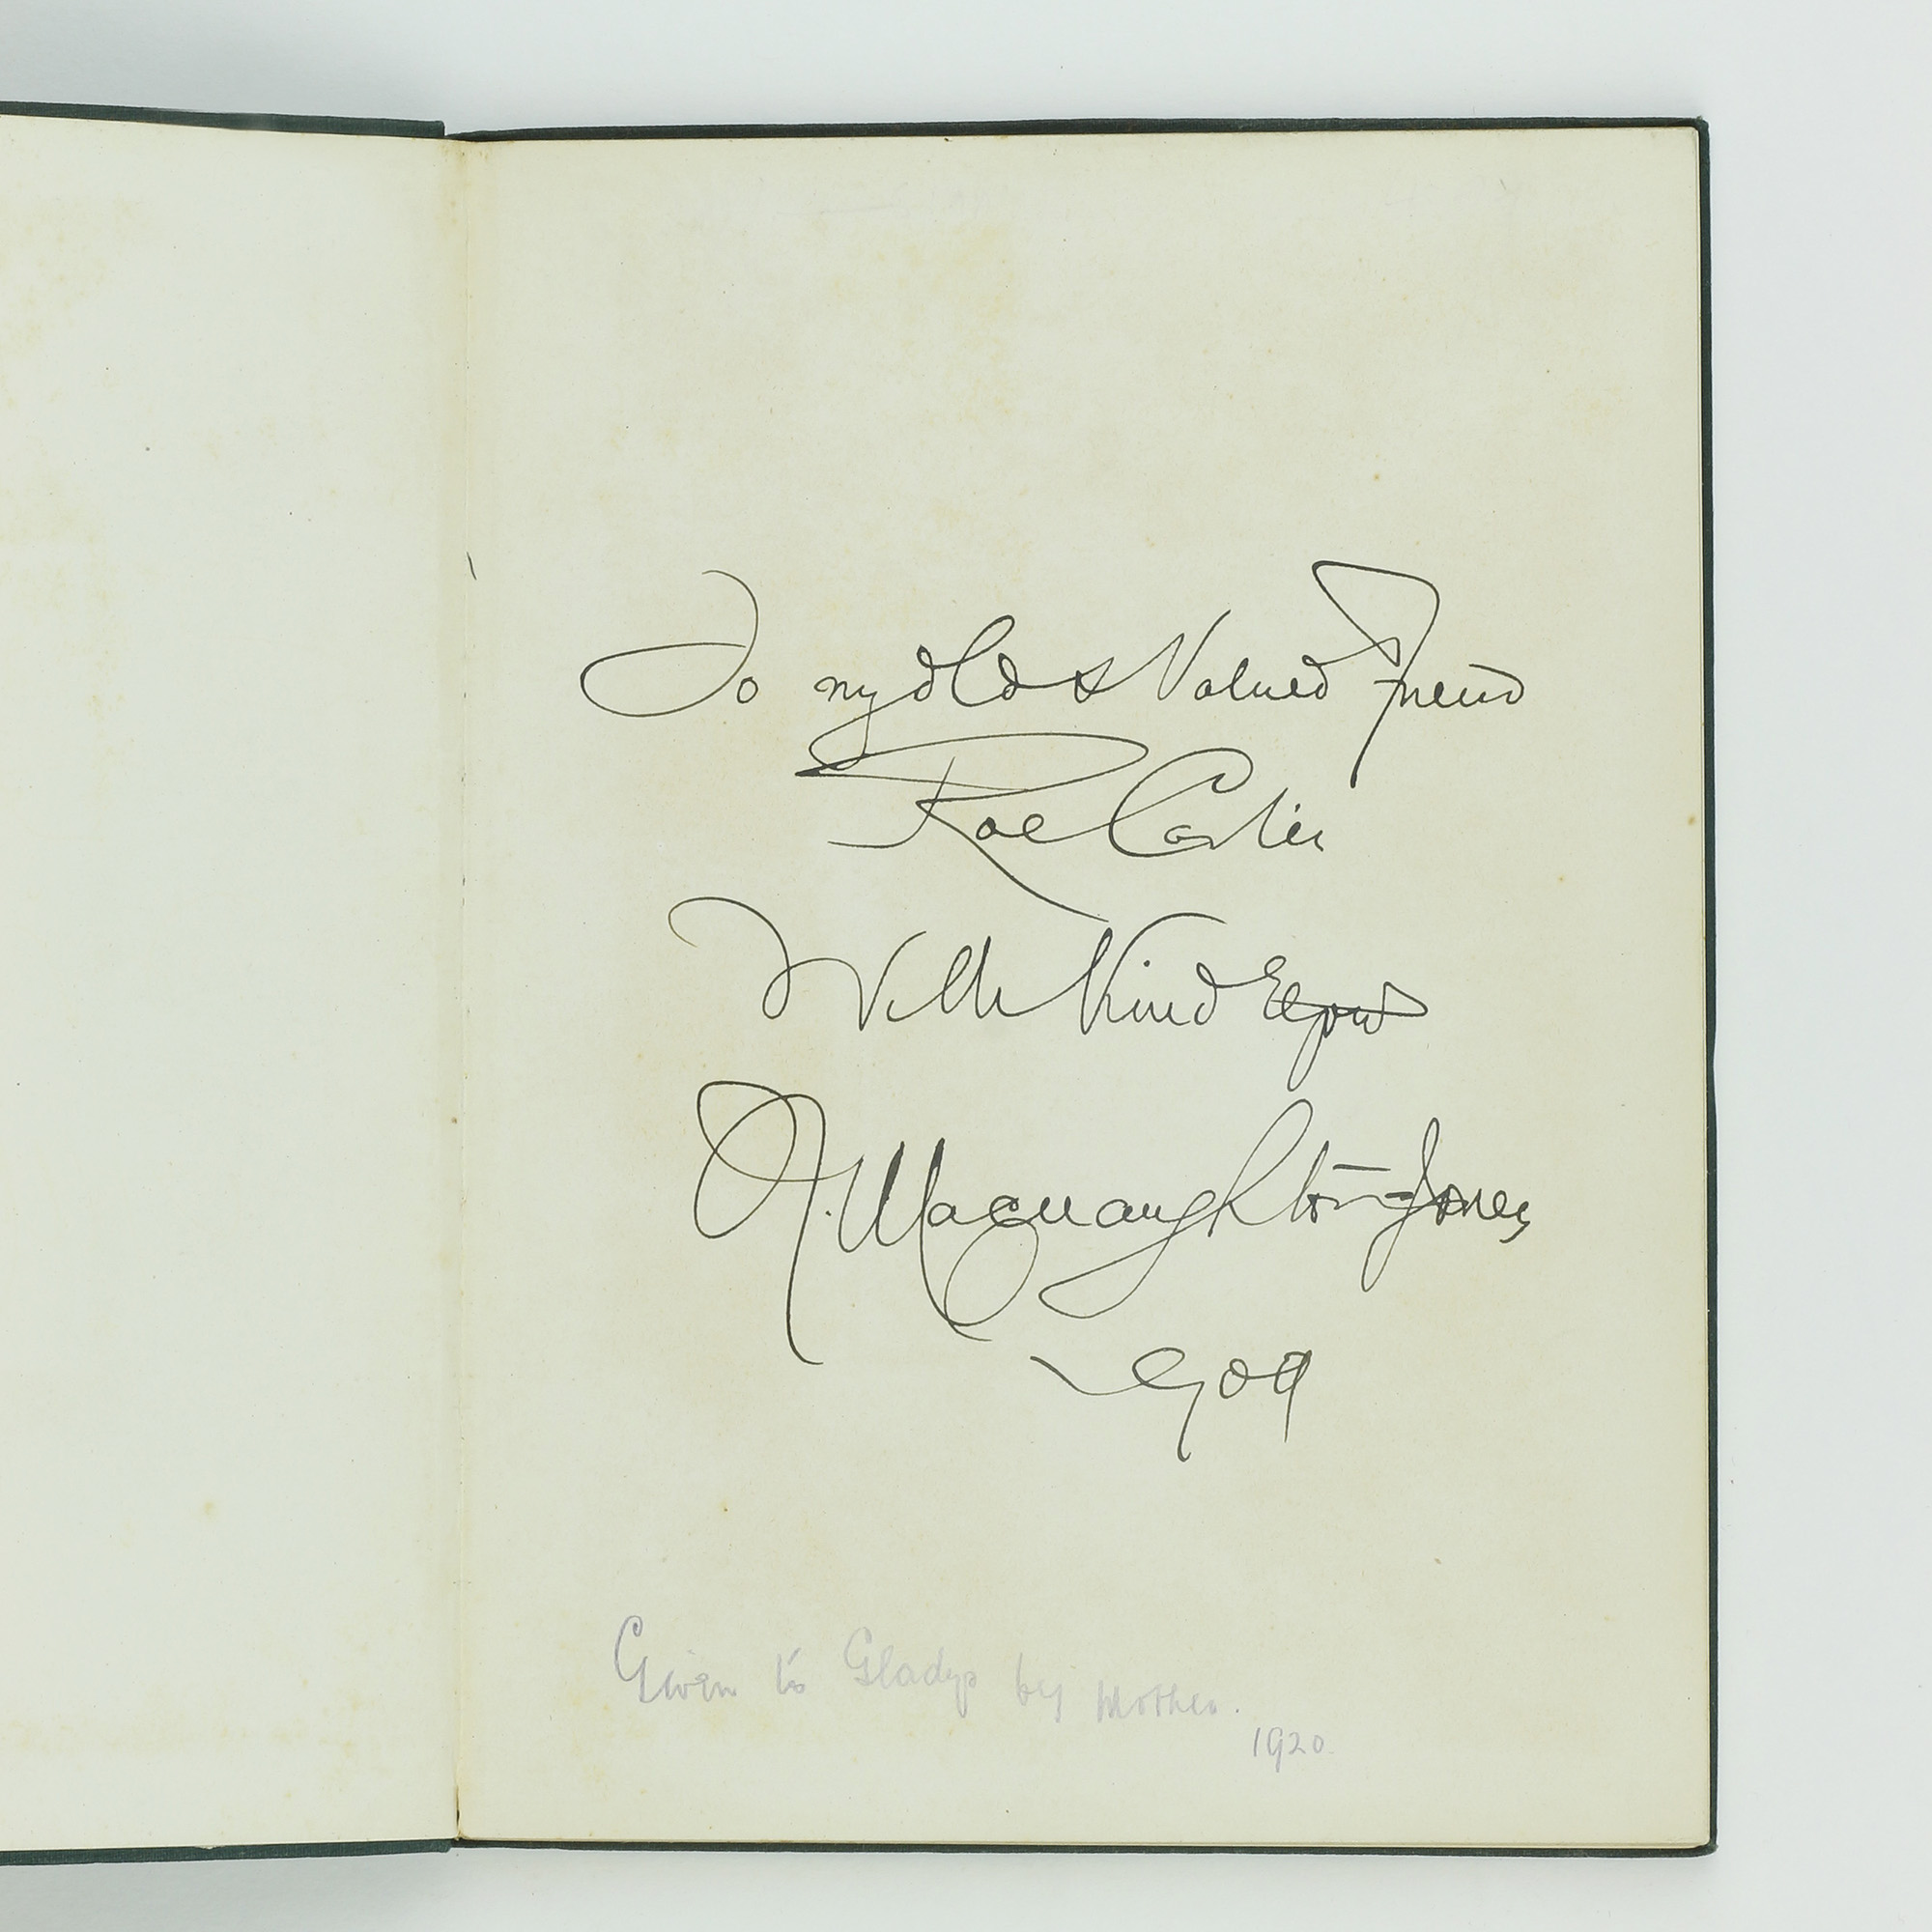 To my old & Valued Friend
Roe Carter
With Kind
H. Macnaughton-Jones
1909
Given to Gladys by Mother.
1920.